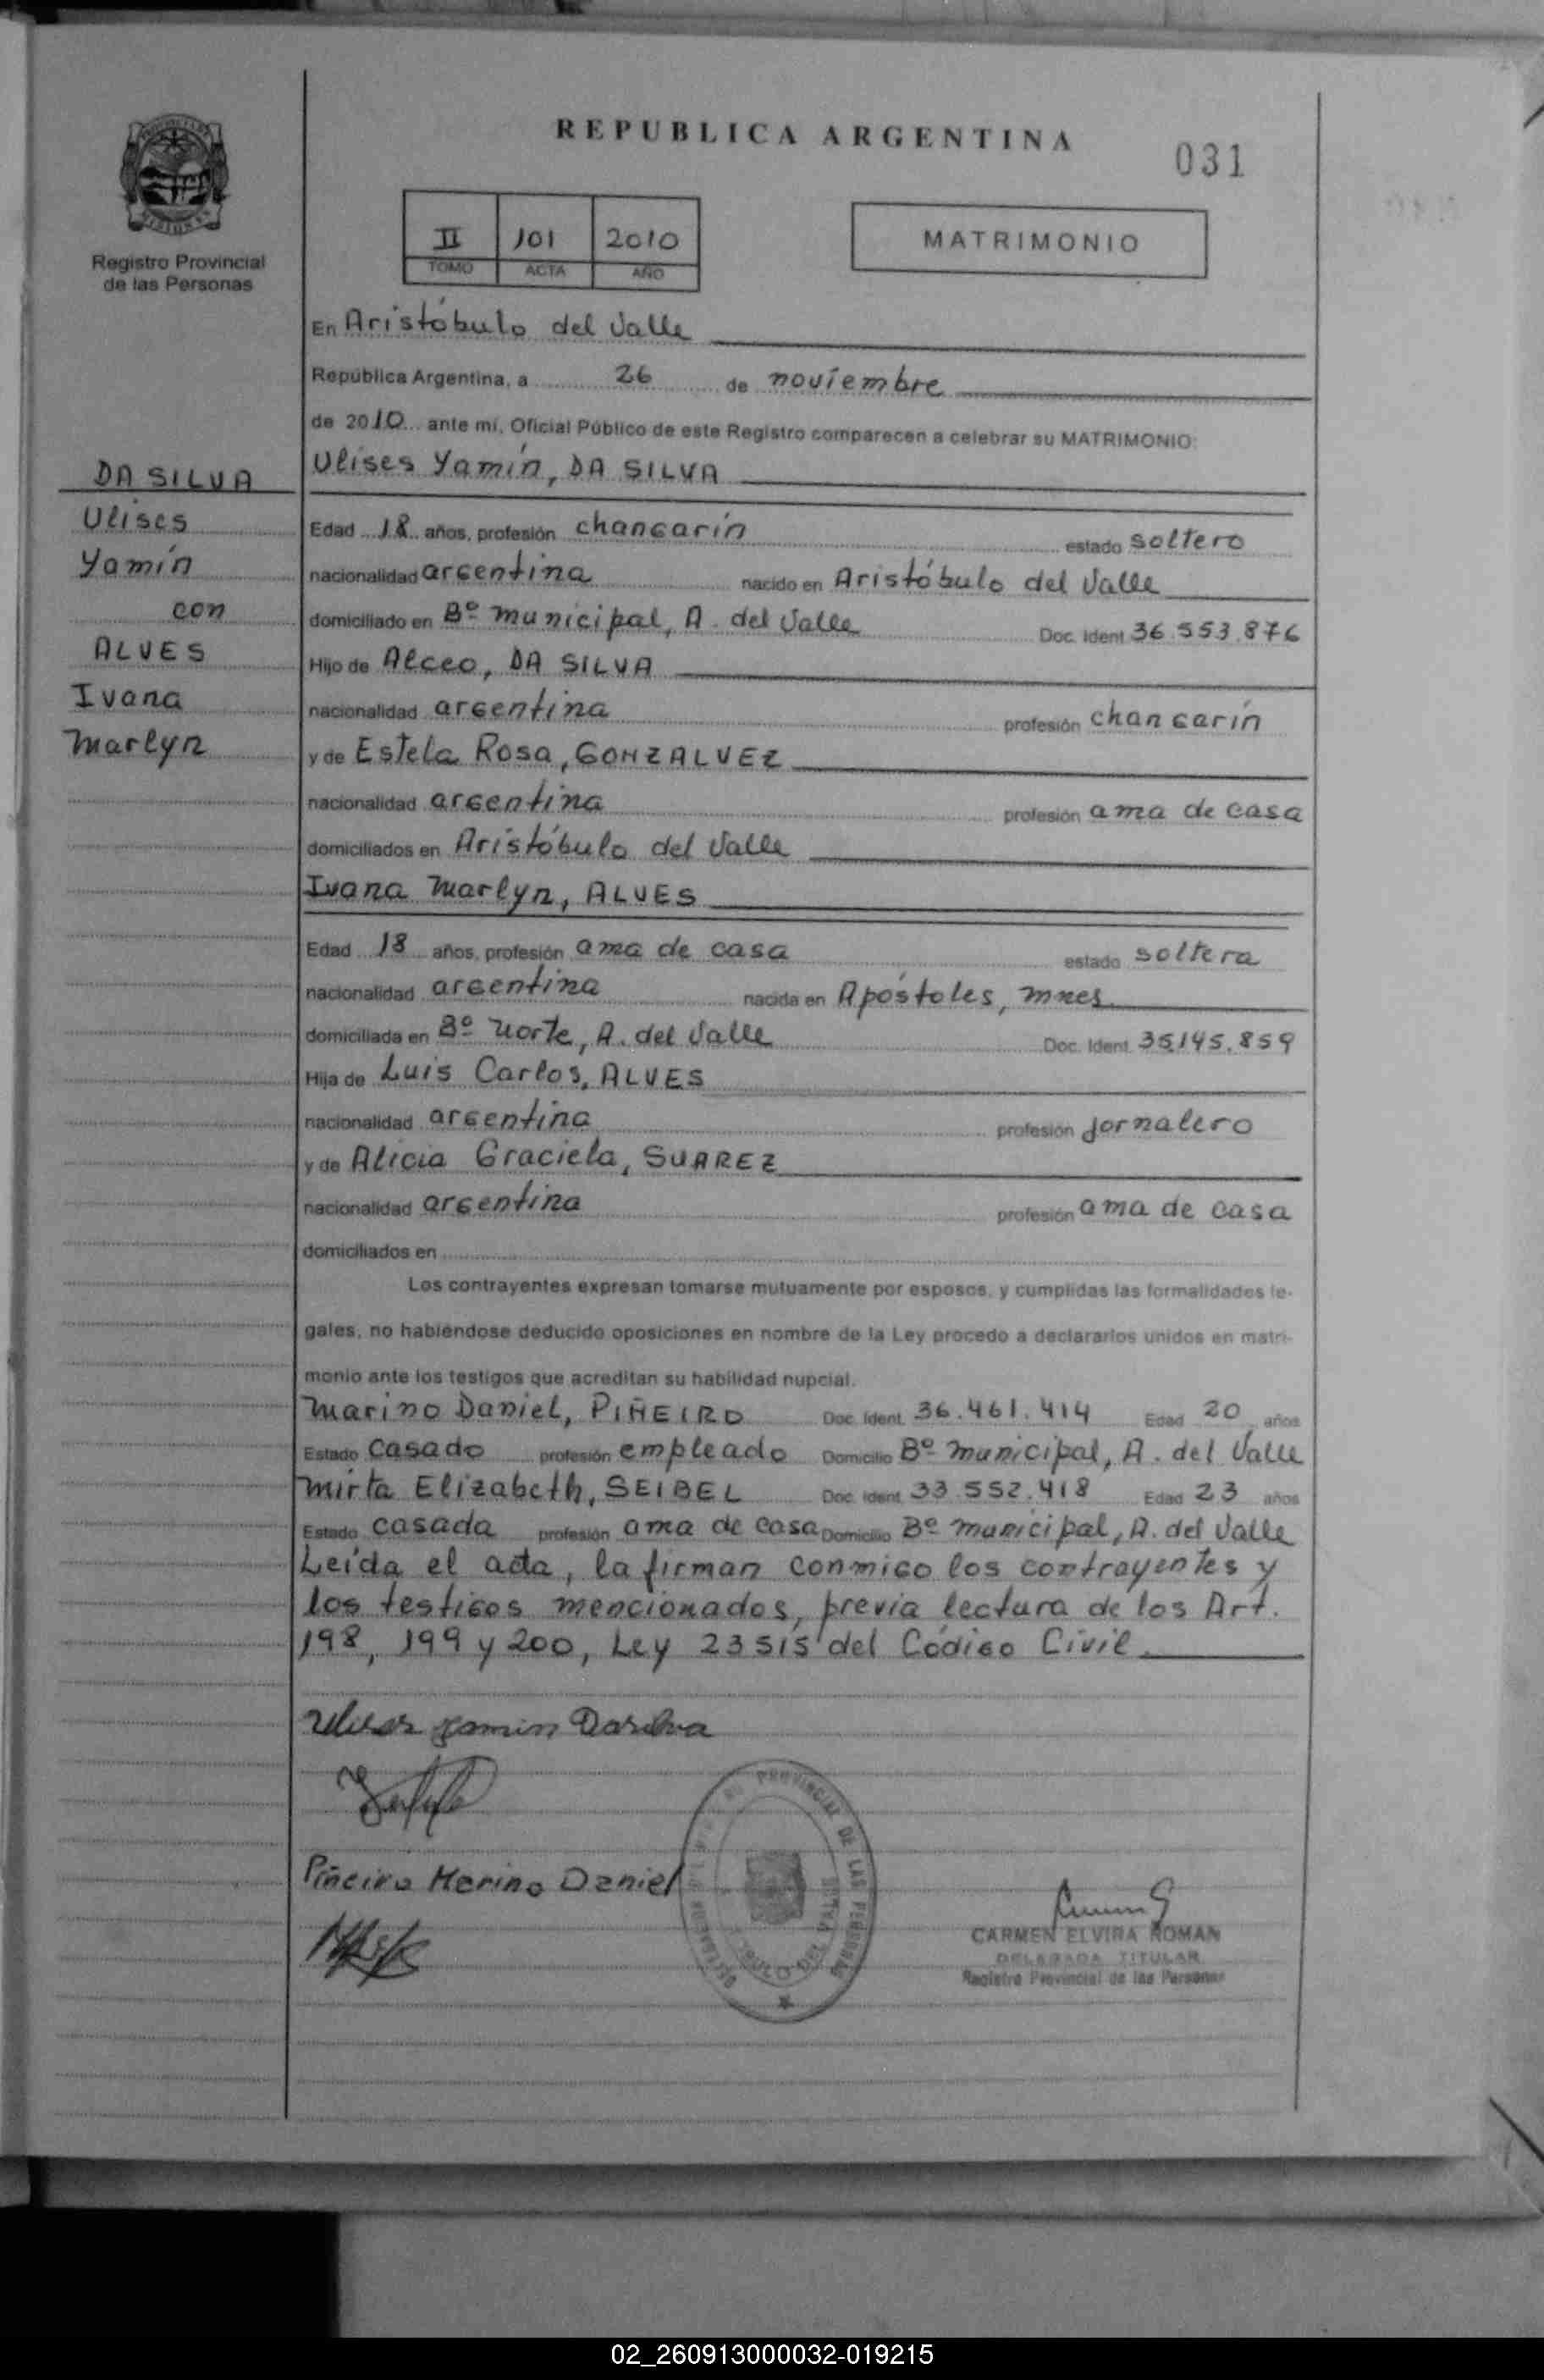 REPUBLICA ARGENTINA
031
Registro Provincial
de las Personas
II 101 2010
TOMO ACTA AÑO
MATRIMONIO
En Aristóbulo del Valle
República Argentina, a 26 de noviembre
de 2010 ante mí, Oficial Público de este Registro comparecen a celebrar su MATRIMONIO:
Ulises Yamín, DA SILVA
DA SILVA
Ulises
Yamín
con
ALVES
Ivana
Marlyn
Edad 18 años, profesión changarín estado soltero
nacionalidad argentina nacido en Aristóbulo del Valle
domiciliado en Bº Municipal, A. del Valle Doc. Ident. 36.553.876
Hijo de Alceo, DA SILVA
nacionalidad argentina profesión changarín
y de Estela Rosa, GONZALVEZ
nacionalidad argentina profesión ama de casa
domiciliados en Aristóbulo del Valle
Ivana Marlyn, ALVES
Edad 18 años, profesión ama de casa estado soltera
nacionalidad argentina nacida en Apóstoles, Mnes.
domiciliada en Bº Norte, A. del Valle Doc. Ident. 35.145.859
Hija de Luis Carlos, ALVES
nacionalidad argentina profesión jornalero
y de Alicia Graciela, SUAREZ
nacionalidad argentina profesión ama de casa
domiciliados en
Los contrayentes expresan tomarse mutuamente por esposos, y cumplidas las formalidades le-
gales, no habiéndose deducido oposiciones en nombre de la Ley procedo a declararlos unidos en matri-
monio ante los testigos que acreditan su habilidad nupcial.
Marino Daniel, PIÑEIRO Doc. Ident. 36.461.414 Edad 20 años
Estado casado profesión empleado Domicilio Bº Municipal, A. del Valle
Mirta Elizabeth, SEIBEL Doc. Ident. 33.552.418 Edad 23 años
Estado casada profesión ama de casa Domicilio Bº Municipal, A. del Valle
Leída el acta, la firman conmigo los contrayentes y
los testigos mencionados, previa lectura de los Art.
198, 199 y 200, Ley 23515 del Código Civil.
Ulises Yamin Dasilva
Piñeiro Merino Daniel
PROVINCIAL DE LAS PERSONAS
CARMEN ELVIRA ROMAN
DELEGADA TITULAR
Registro Provincial de las Personas
02_260913000032-019215